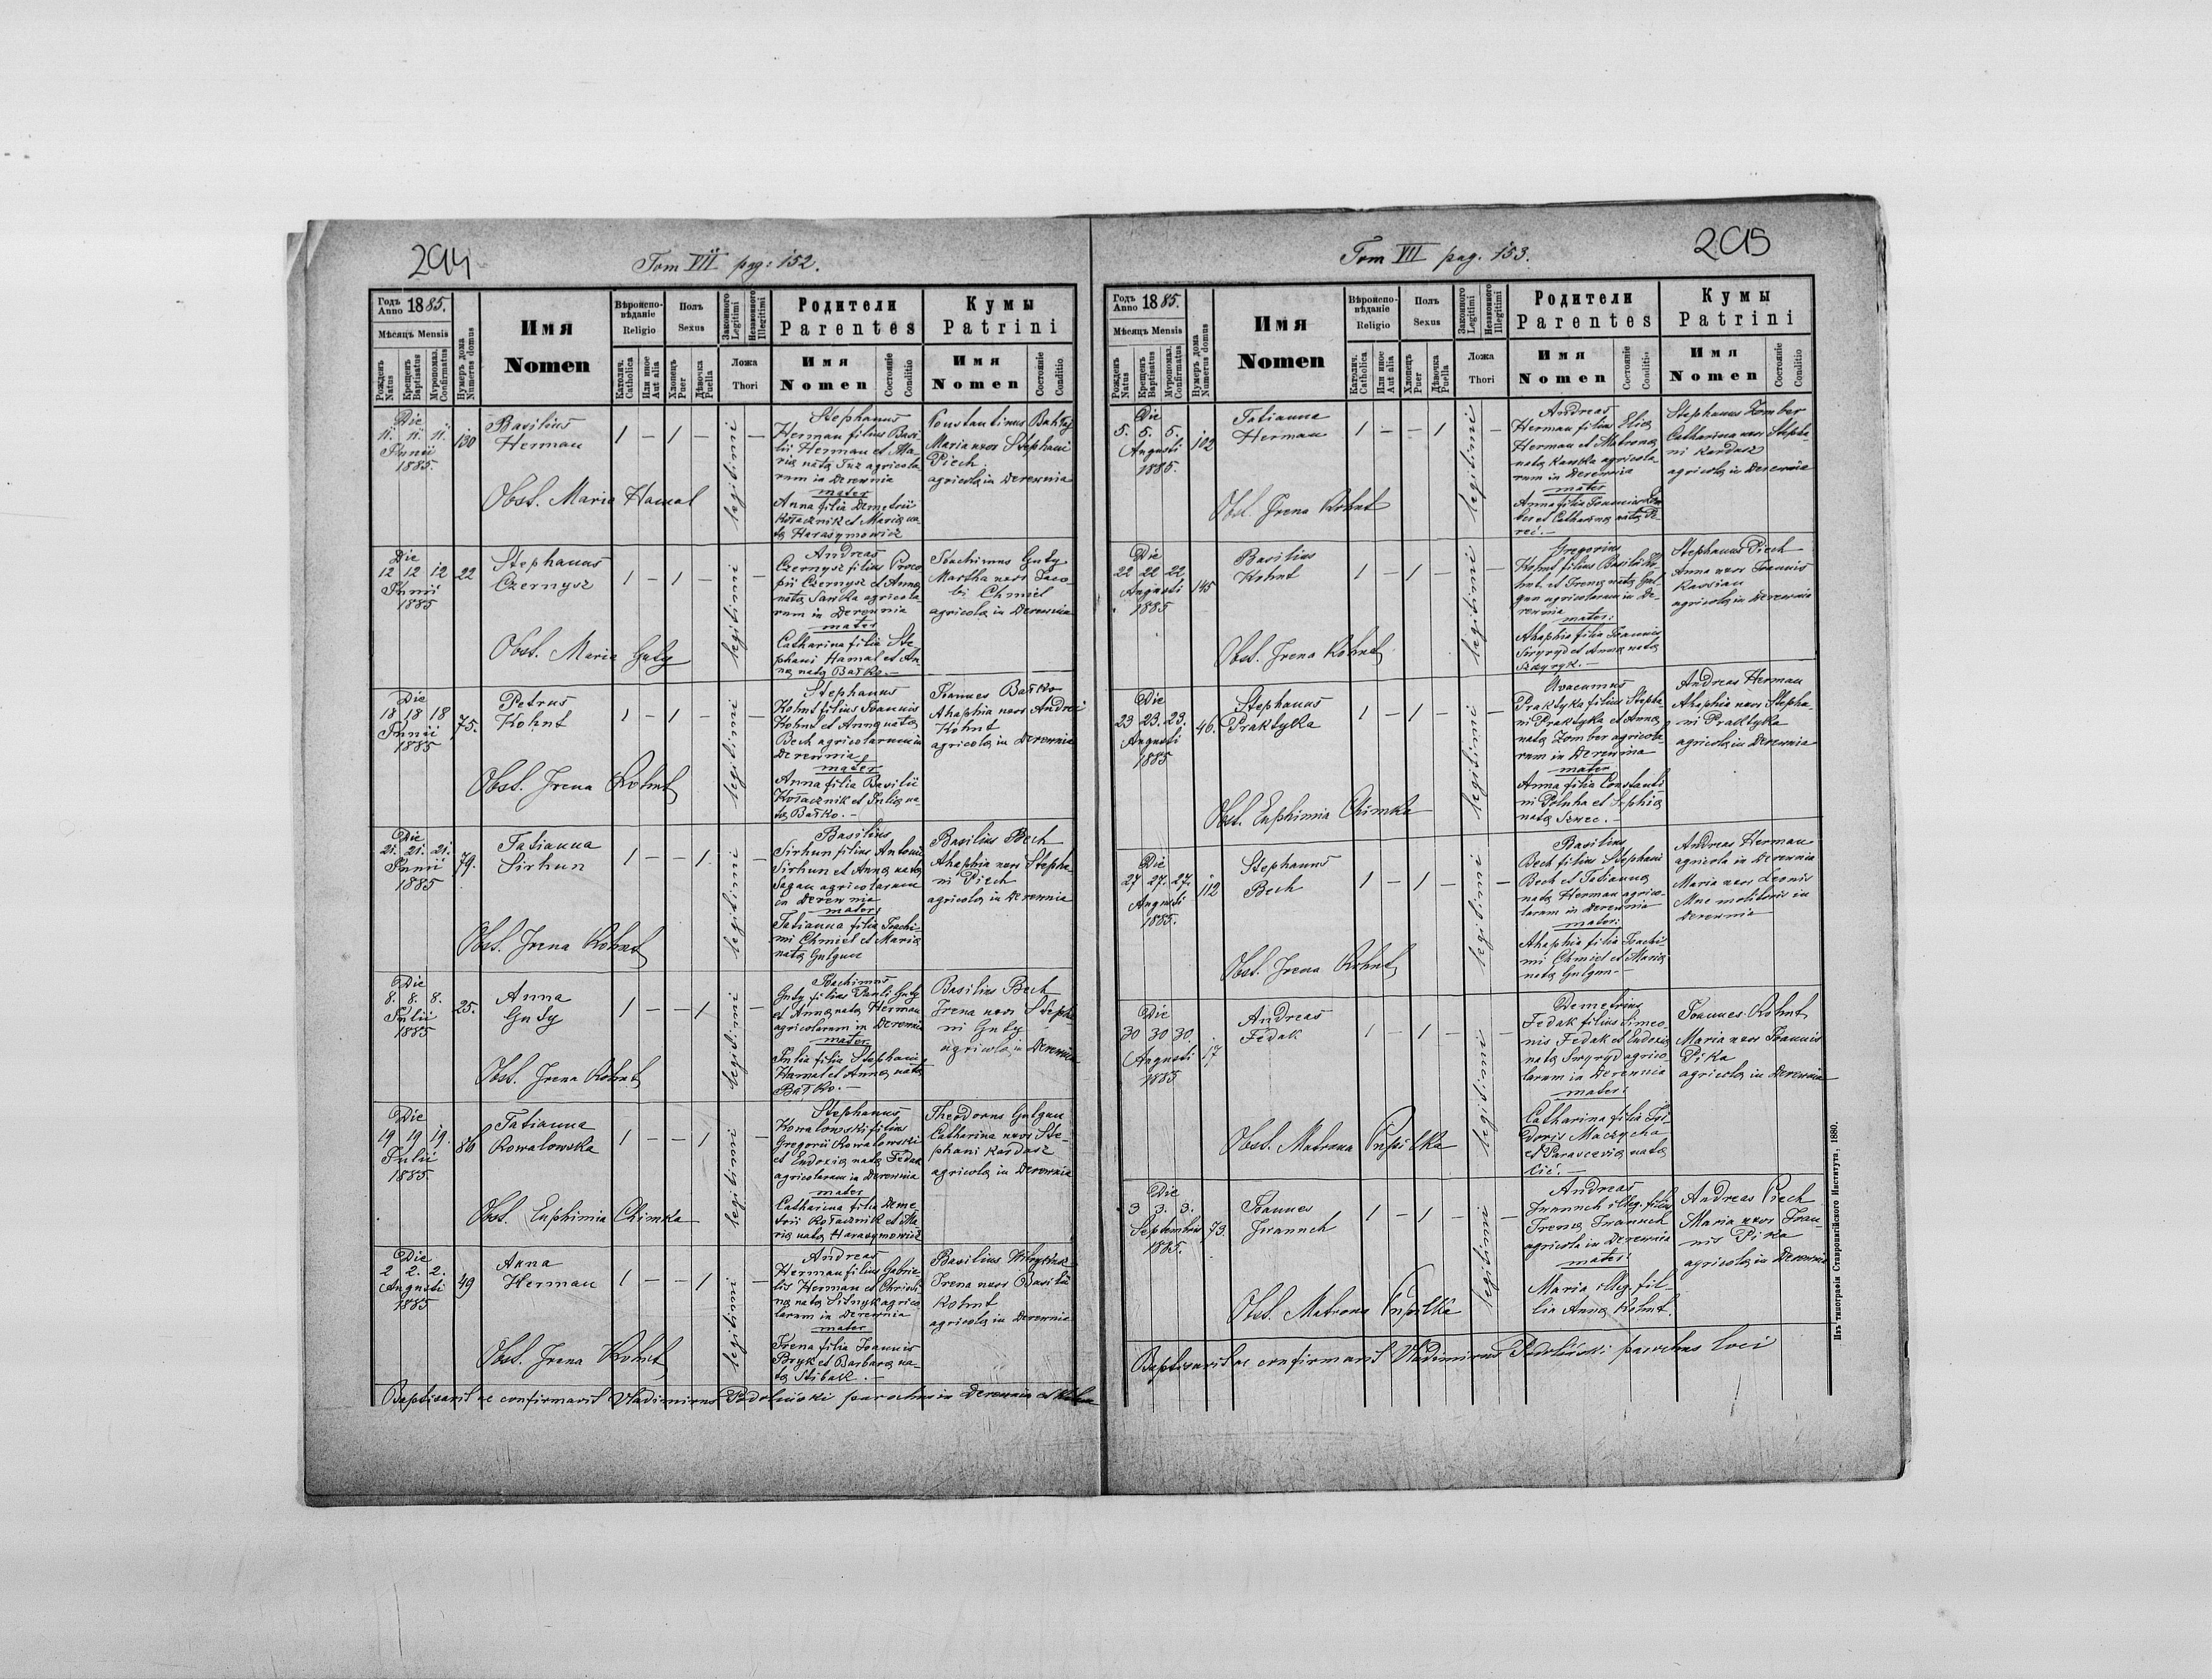 294
Tom VII pag: 152.
Годъ Anno 1885.
Мѣсяць Mensis
Рожденъ Natus
Крещенъ Baptisatus
Муропомаз. Confirmatus
Нумеръ дома Numerus domus
Имя Nomen
Вѣроисповѣданіе Religio
Католич. Catholica
Или иное Aut alia
Полъ Sexus
Хлопецъ Puer
Дѣвочка Puella
Законного Legitimi
Незаконного Illegitimi
Ложа Thori
Родители Parentes
Имя Nomen
Состояніе Conditio
Кумы Patrini
Имя Nomen
Состояніе Conditio
Die
11. 11. 11.
Junii
1885.
130
Basilius
Herman
Obst. Maria Hamal
1 – 1 –
legitimi –
Stephanus
Herman filius Basi-
lii Herman et Ma-
ria nata Tuz agricola-
rum in Derewnia
mater
Anna filia Demetrii
Kołacznik et Maria na-
ta Harasymowicz
Constantinus
Maria uxor Stephani
Piech
agricolæ in Derewnia
Die
12 12 12
Junii
1885
22
Stephanus
Czernysz
Obst. Maria Guty
1 – 1 –
legitimi –
Andreas
Czernysz filius Proco-
pii Czernysz et Anna
nata Sawka agricola-
rum in Derewnia
mater
Catharina filia Ste-
phani Hamal et An-
na nata Bałko. –
Joachimus Guty
Martha uxor Jaco-
bi Chmiel
agricolæ in Derewnia
Die
18 18 18
Junii
1885
75.
Petrus
Kohut
Obst. Irena Kohut
1 – 1 –
legitimi –
Stephanus
Kohut filius Joannis
Kohut et Anna nata
Bech agricolarum in
Derewnia
mater
Anna filia Basilii
Kołacznik et Julia na-
ta Bałko. –
Joannes Bałko
Ahaphia uxor Andrei
Kohut
agricolæ in Derewnia
Die
21. 21. 21.
Junii
1885
79.
Tatianna
Sirhun
Obst. Irena Kohut
1 – – 1
legitimi –
Basilius
Sirhun filius Antonii
Sirhun et Anna nata
Sagan agricolarum
in Derewnia
mater
Tatianna filia Joachi-
mi Chmiel et Maria
nata Gulgun
Basilius Bech
Ahaphia uxor Stepha-
ni Piech
agricolæ in Derewnia
Die
8. 8. 8.
Julii
1885
25.
Anna
Guty
Obst. Irena Kohut
1 – – 1
legitimi –
Joachimus
Guty filius Pauli Guty
et Anna nata Herman
agricolarum in Derewnia
mater
Julia filia Stephani
Hamal et Anna nata
Bałko. –
Basilius Bech
Irena uxor Stepha-
ni Guty
agricolæ in Derewnia
Die
19 19 19.
Julii
1885.
86
Tatianna
Kowalowska
Obst. Euphimia Chimka
1 – – 1
legitimi –
Stephanus
Kowalowski filius
Gregorii Kowalowski
et Eudoxia nata Fedak
agricolarum in Derewnia
mater
Catharina filia Deme-
trii Kołacznik et Ma-
ria nata Harasymowicz
Theodorus Gulgun
Catharina uxor Ste-
phani Kardasz
agricolæ in Derewnia
Die
2 2. 2.
Augusti
1885
49
Anna
Herman
Obst. Irena Kohut
1 – – 1
legitimi
Andreas
Herman filius Gabrie-
lis Herman et Christi-
na nata Sitnyk agrico-
larum in Derewnia
mater
Irena filia Joannis
Bryk et Barbara na-
ta Stibak. –
Basilius
Irena uxor Basilii
Kohut
agricolæ in Derewnia
Baptisavit ac confirmavit Vladimirus Podoliński parochus in Derewnia et
295
Tom VII pag. 153.
Годъ Anno 1885.
Мѣсяць Mensis
Рожденъ Natus
Крещенъ Baptisatus
Муропомаз. Confirmatus
Нумеръ дома Numerus domus
Имя Nomen
Вѣроисповѣданіе Religio
Католич. Catholica
Или иное Aut alia
Полъ Sexus
Хлопецъ Puer
Дѣвочка Puella
Законного Legitimi
Незаконного Illegitimi
Ложа Thori
Родители Parentes
Имя Nomen
Состояніе Conditio
Кумы Patrini
Имя Nomen
Состояніе Conditio
Die
5. 5. 5.
Augusti
1885.
102
Tatianna
Herman
Obst. Irena Kohut
1 – – 1
legitimi –
Andreas
Herman filius Eliæ
Herman et Matrona
nata Kawka agricola-
rum in Derewnia
mater
Anna filia Joannis Zom-
ber et Catharina nata
Stephanus Zomber
Catharina uxor Stepha-
ni Kardasz
agricolæ in Derewnia
Die
22 22 22
Augusti
1885
145
Basilius
Kohut
Obst. Irena Kohut
1 – 1 –
legitimi –
Gregorius
Kohut filius Basilii Ko-
hut et Irena nata Gul-
gun agricolarum in De-
rewnia
mater:
Ahaphia filia Joannis
Swyryd et Anna nata
Szczyryk. –
Stephanus Piech
Anna uxor Joannis
Kassian
agricolæ in Derewnia
Die
23 23. 23.
Augusti
1885
46.
Stephanus
Praktyka
Obst. Euphimia Chimka
1 – 1 –
legitimi –
Avacumus
Praktyka filius Stepha-
ni Praktyka et Anna
nata Zomber agricola-
rum in Derewnia
mater
Anna filia Constanti-
ni Poluha et Sophia
nata Szwec. –
Andreas Herman
Ahaphia uxor Stepha-
ni Praktyka
agricolæ in Derewnia
Die
27 27. 27.
Augusti
1885.
112
Stephanus
Bech
Obst. Irena Kohut
1 – 1 –
legitimi –
Basilius
Bech filius Stephani
Bech et Tatianna
nata Herman agrico-
larum in Derewnia
mater:
Ahaphia filia Joachi-
mi Chmiel et Maria
nata Gulgun –
Andreas Herman
agricola in Derewnia
Maria uxor Leonis
Muc molitoris in
Derewnia
Die
30 30 30.
Augusti
1885
17.
Andreas
Fedak
Obst. Matrona Pupilka
1 – 1 –
legitimi –
Demetrius
Fedak filius Simeo-
nis Fedak et Eudoxia
nata Swyryd agrico-
larum in Derewnia
mater:
Catharina filia Isi-
doris Maczycha
et Parascevia nata
Cić. –
Joannes Kohut
Maria uxor Joannis
Pika
agricolæ in Derewnia
Die
3 3. 3.
Septembris
1885.
73.
Joannes
Iwanuch
Obst. Matrona Pupilka
1 – 1 –
legitimi –
Andreas
Iwanuch illeg. filius
Irena Iwanuch
agricola in Derewnia
mater:
Maria illeg. fil-
lia Anna Kohut.
Andreas Piech
Maria uxor Joan-
nis Pika
agricolæ in Derewnia
Baptisavit ac confirmavit Vladimirus Podoliński parochus loci
Изъ типографіи Ставропигійского Института, 1880.